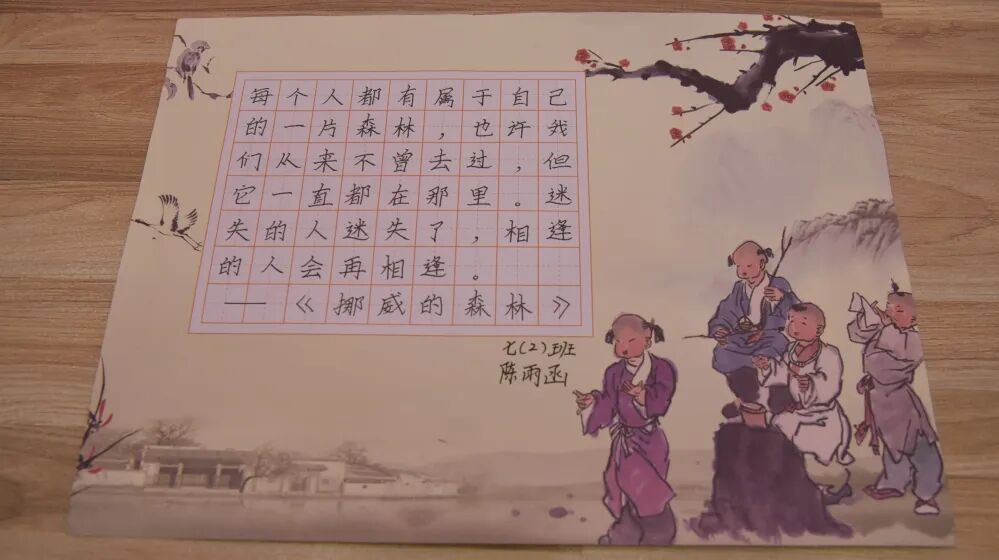 每个人都有属于自己
的一片森林，也许我
们从来不曾去过，但
它一直都在那里。迷
失的人迷失了，相逢
的人会再相逢。
——《挪威的森林》
七(2)班
陈雨函